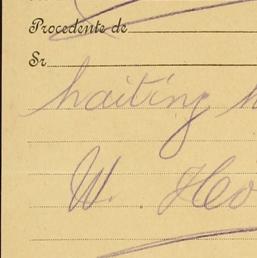 Procedente de
Sr
haiting
W. Ho